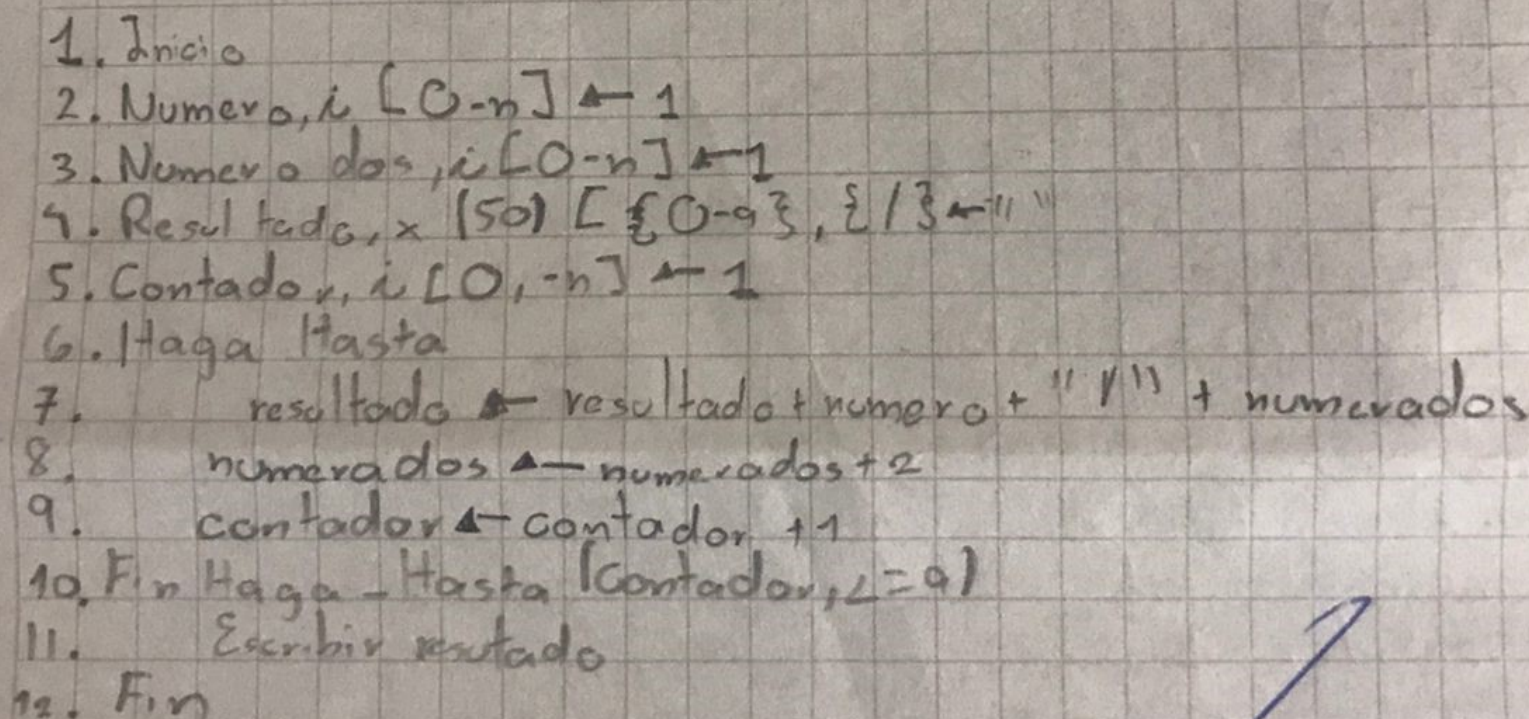 1. Inicio
2. Numero, i [0-n] ← 1
3. Numero dos, i [0-n] ← 1
4. Resultado, x (50) [{0-9}, {/} ← " "
5. Contador, i [0,-n] ← 1
6. Haga Hasta
7. resultado ← resultado + numero + "/" + numerados
8. numerados ← numerados + 2
9. contador ← contador + 1
10. Fin Haga - Hasta (Contador, <= 9)
11. Escribir resutado
12. Fin